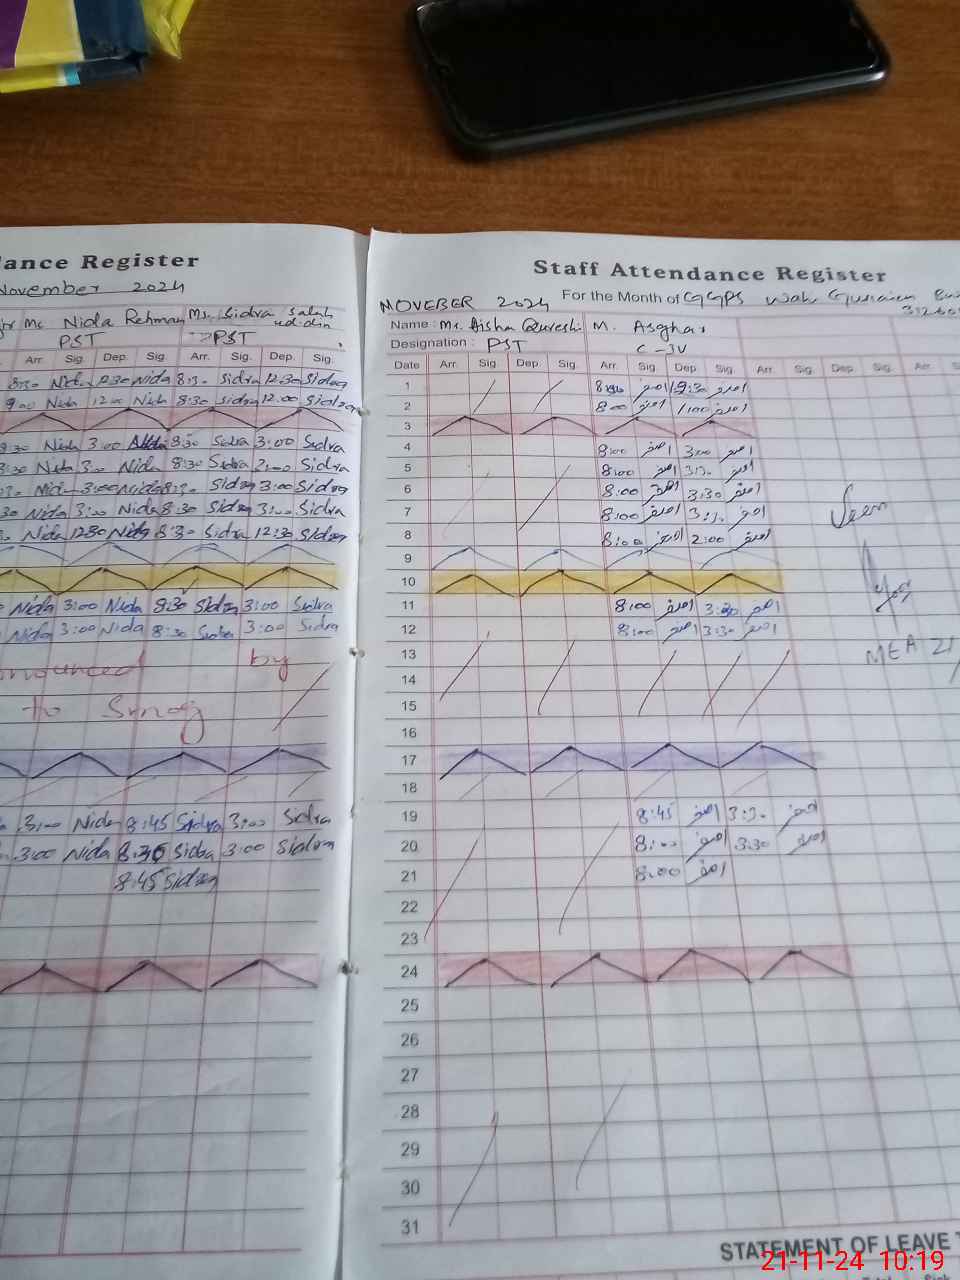 ance Register
November 2024
Ms Nida Rehman Ms. Sidra Salah
ud-din
PST PST
Arr. Sig. Dep. Sig. Arr. Sig. Dep. Sig.
8:30 Nida 12:30 Nida 8:30 Sidra 12:30 Sidra
9:00 Nida 12:00 Nida 8:30 Sidra 12:00 Sidra
8:30 Nida 3:00 Nida 8:30 Sidra 3:00 Sidra
8:30 Nida 3:00 Nida 8:30 Sidra 2:00 Sidra
:30 Nida 3:00 Nida 8:30 Sidra 3:00 Sidra
30 Nida 3:00 Nida 8:30 Sidra 3:00 Sidra
Nida 12:30 Nida 8:30 Sidra 12:30 Sidra
Nida 3:00 Nida 8:30 Sidra 3:00 Sidra
Nida 3:00 Nida 8:30 Sidra 3:00 Sidra
nounced by
to Smog
3:00 Nida 8:45 Sidra 3:00 Sidra
3:00 Nida 8:30 Sidra 3:00 Sidra
8:45 Sidra
Staff Attendance Register
MOVEBER 2024 For the Month of GGPS Wah
Name : Ms. Aisha Qureshi M. Asghar
Designation : PST C-IV
Date Arr. Sig. Dep. Sig. Arr. Sig. Dep. Sig. Arr. Sig. Dep. Sig. Arr. S
1 8:00 اصغر 12:30 اصغر
2 8:00 اصغر 1:00 اصغر
3
4 8:00 اصغر 3:00 اصغر
5 8:00 اصغر 3:30 اصغر
6 8:00 اصغر 3:30 اصغر
7 8:00 اصغر 3:30 اصغر
8 8:00 اصغر 2:00 اصغر
Seen
9
10
11 8:00 اصغر 3:30 اصغر
12 8:00 اصغر 3:30 اصغر
13
MEA 21
14
15
16
17
18
19 8:45 اصغر 3:30 اصغر
20 8:00 اصغر 3:30 اصغر
21 8:00 اصغر
22
23
24
25
26
27
28
29
30
31
STATEMENT OF LEAVE
21-11-24 10:19